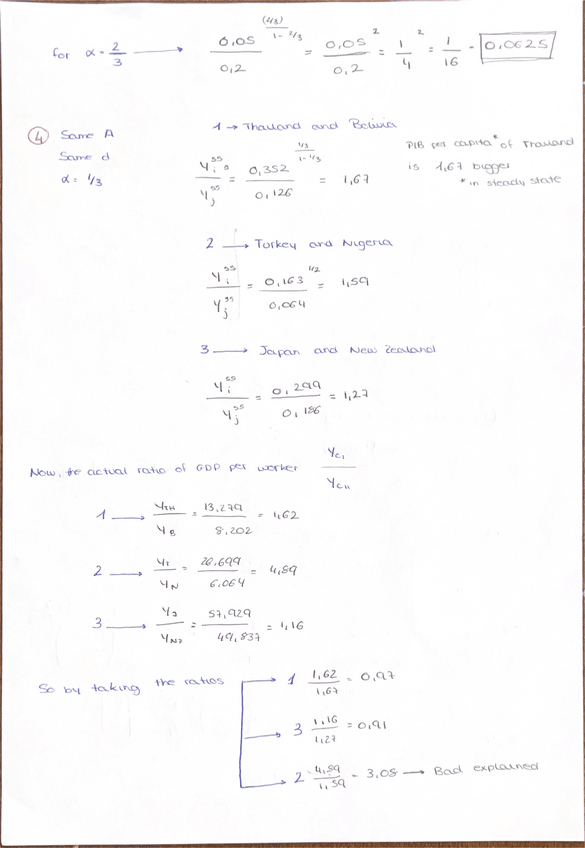 for α = 2/3 → 0,05/0,2 ^ (2/3)/(1 - 2/3) = 0,05/0,2 ^2 = 1/4 ^2 = 1/16 = 0,0625
④ Same A
Same d
α = 1/3
1 → Thailand and Bolivia
Yi^ss / Yj^ss = 0,352/0,126 ^ (1/3)/(1 - 1/3) = 1,67
PIB per capita* of Thailand
is 1,67 bigger
*in steady state
2 → Turkey and Nigeria
Yi^ss / Yj^ss = 0,163/0,064 ^ 1/2 = 1,59
3 → Japan and New Zealand
Yi^ss / Yj^ss = 0,299/0,186 = 1,27
Now, the actual ratio of GDP per worker Yci / Ycii
1 → YTH / YB = 13,279 / 8,202 = 1,62
2 → YT / YN = 6,064 = 4,89
3 → YJ / YNZ = 57,929 / 49,837 = 1,16
So by taking the ratios → 1 1,62/1,67 = 0,97
3 1,16/1,27 = 0,91
2 4,89/1,59 = 3,08 → Bad explained